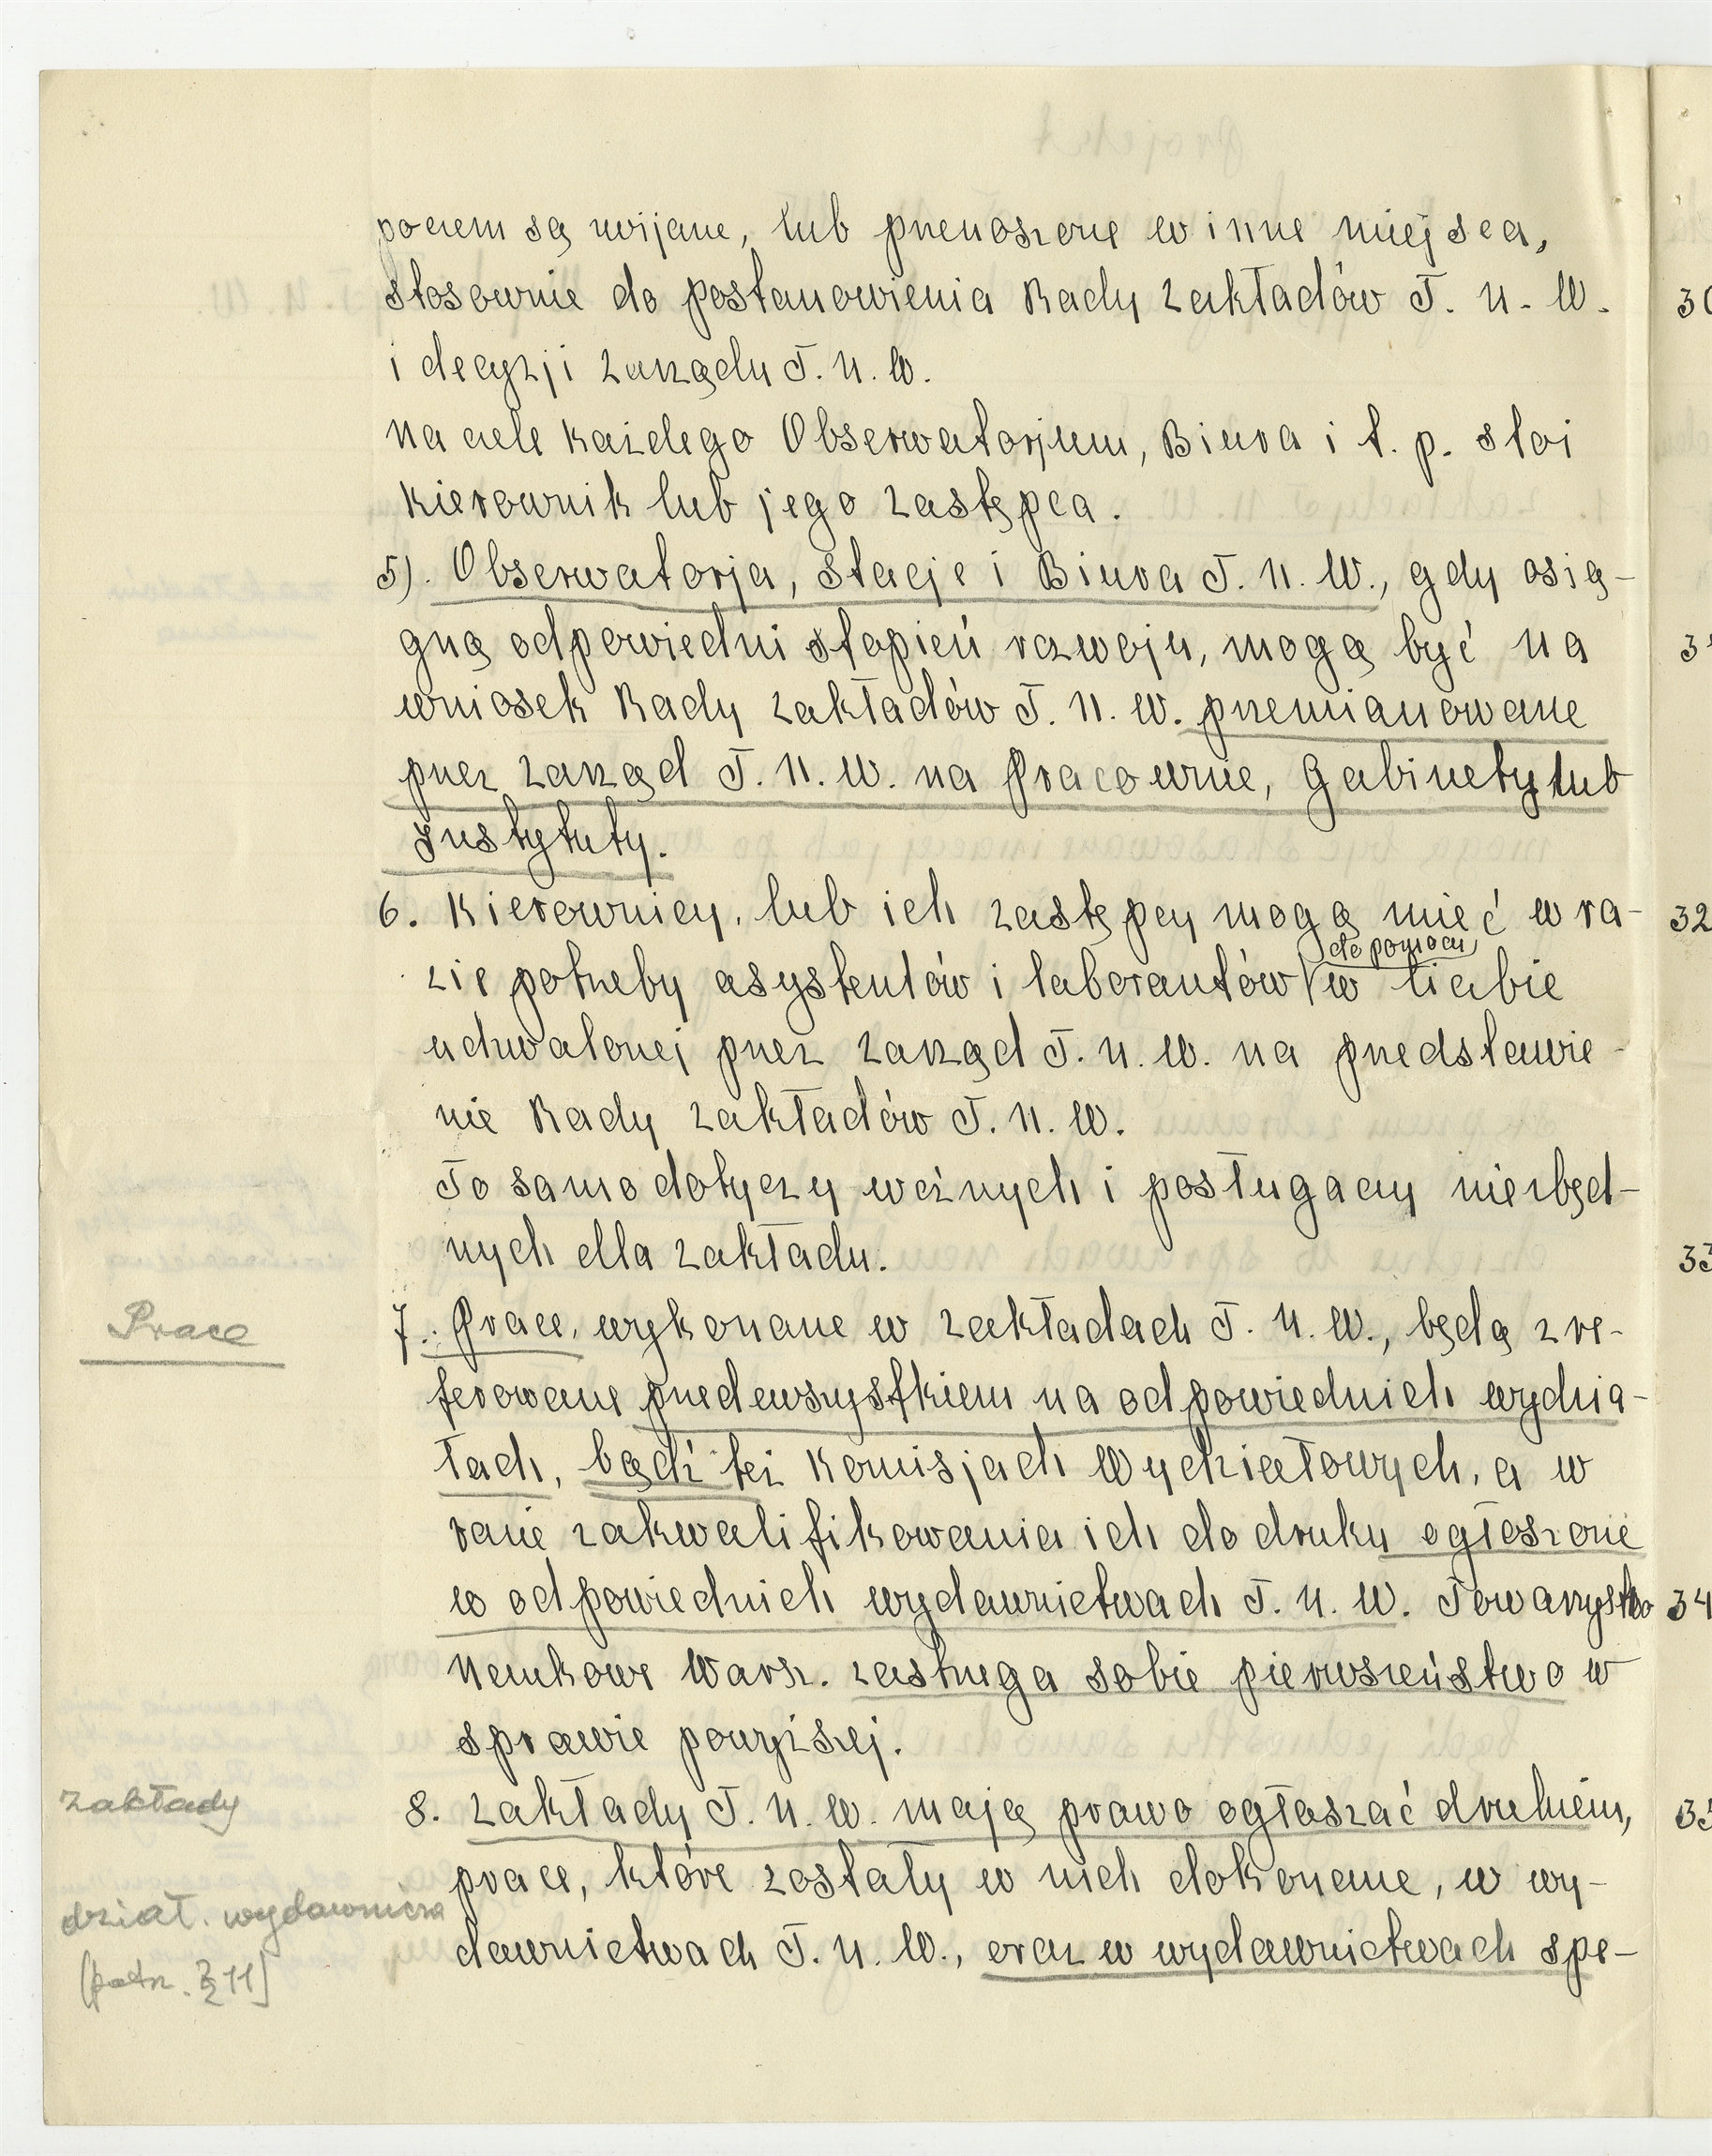 poczem są zwijane, lub przenoszone w inne miejsca,
stosownie do postanowienia Rady Zakładów T. N. W.
i decyzji Zarządu T. N. W.
Na czele każdego Obserwatorjum, Biura i t. p. stoi
Kierownik lub jego zastępca.
5). Obserwatorja, Stacje i Biura T. N. W., gdy osią-
gną odpowiedni stopień rozwoju, mogą być na
wniosek Rady Zakładów T. N. W. przemianowane
przez Zarząd T. N. W. na Pracownie, Gabinety lub
Instytuty.
6. Kierownicy, lub ich zastępcy mogą mieć w ra-
do pomocy
zie potrzeby asystentów i laborantów w liczbie
uchwalonej przez Zarząd T. N. W. na przedstawie-
nie Rady Zakładów T. N. W.
To samo dotyczy woźnych i posługaczy niezbęd-
nych dla Zakładu.
Prace
7. Prace, wykonane w Zakładach T. N. W., będą zre-
ferowane przedewszystkiem na odpowiednich wydzia-
łach, bądź też Komisjach Wydziałowych, a w
razie zakwalifikowania ich do druku ogłoszone
w odpowiednich wydawnictwach T. N. W. Towarzystwo
Naukowe Warsz. zastrzega sobie pierwszeństwo w
sprawie powyższej.
Zakłady
8. Zakłady T. N. W. mają prawo ogłaszać drukiem,
prace, które zostały w nich dokonane, w wy-
dział. wydawnicza
dawnictwach T. N. W., oraz w wydawnictwach spe-
(patrz. § 11)
31
32
33
34
35